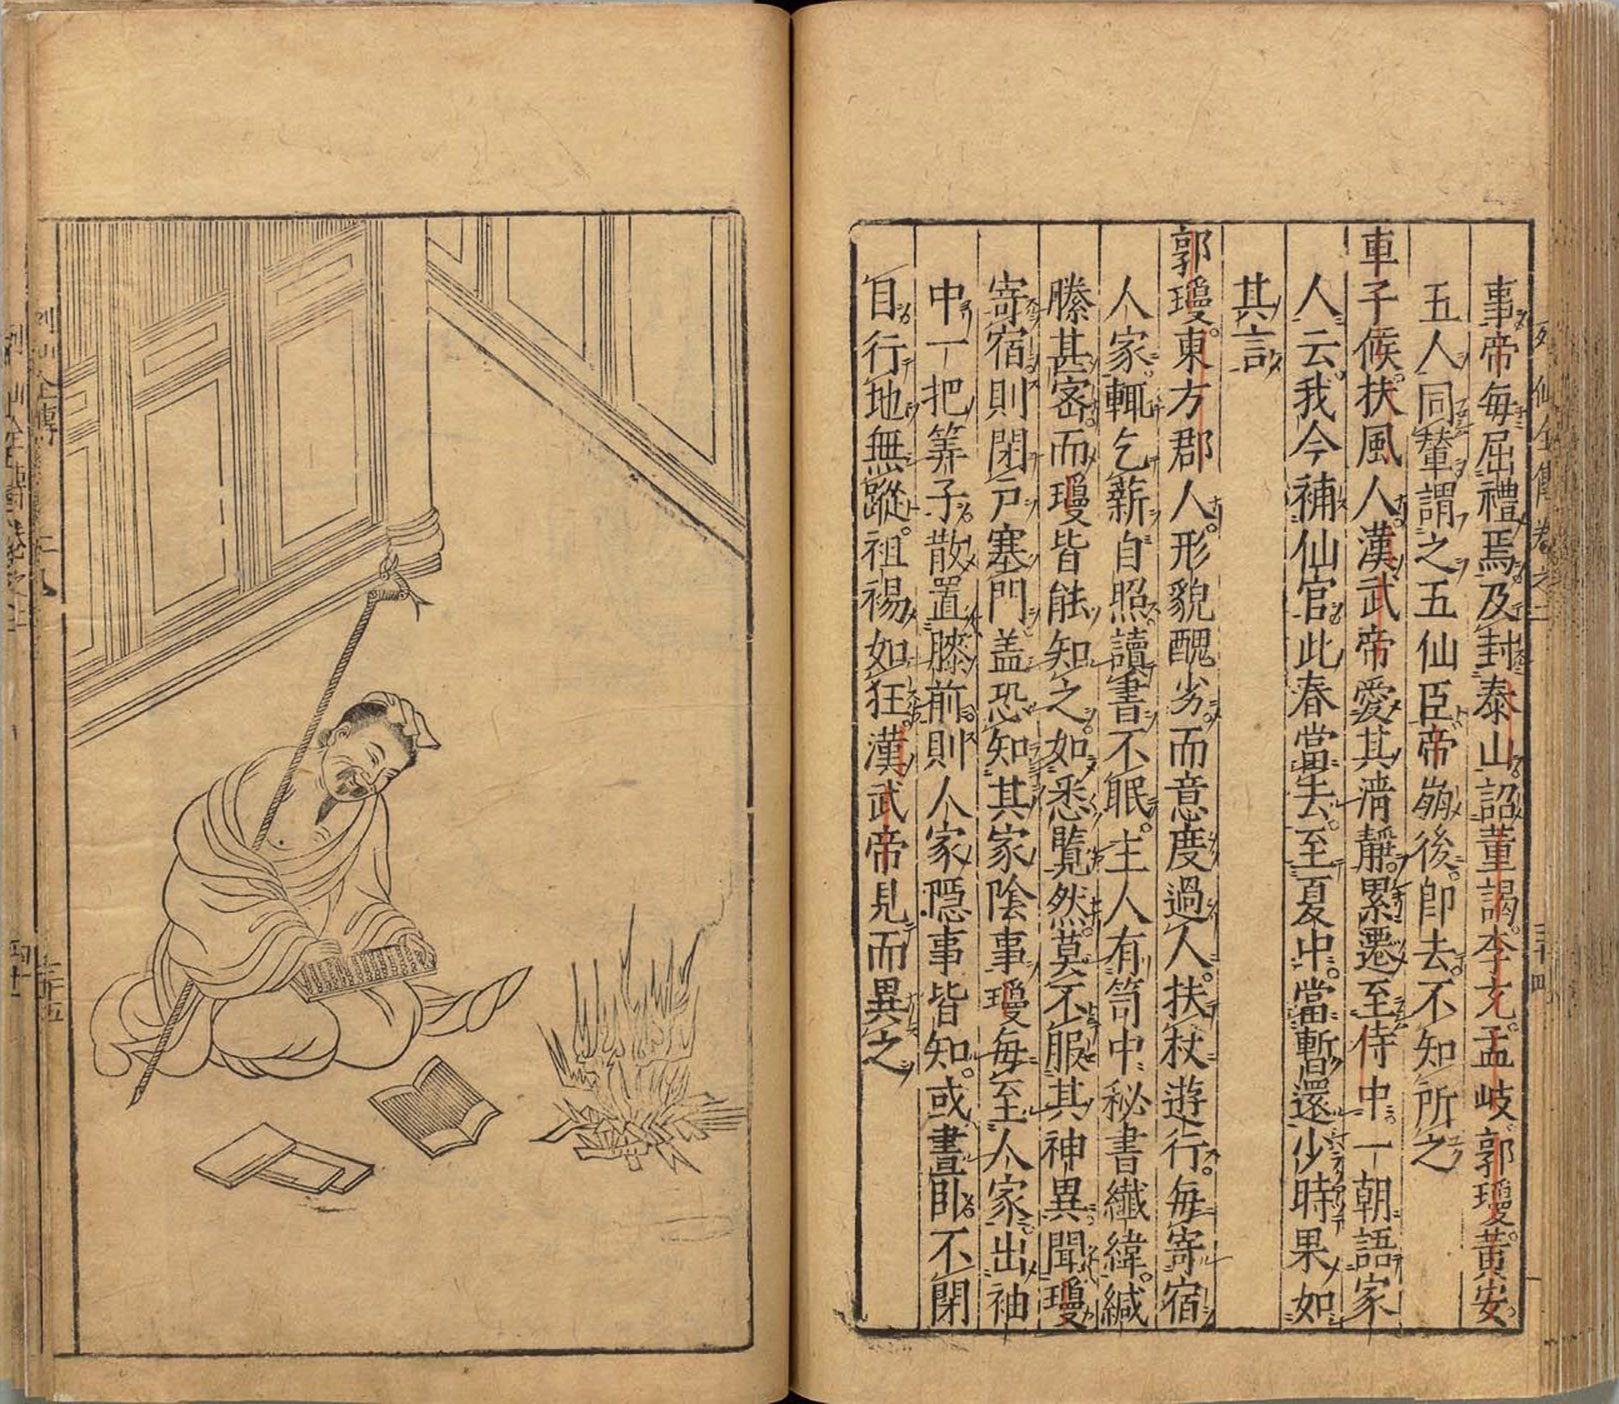 事帝每屈禮焉及封泰山詔董謁李充孟岐郭瓊黃安
五人同輦謂之五仙臣帝崩後即去不知所之
車子候扶風人漢武帝愛其清靜累遷至侍中一朝語家
人云我今補仙官此春當去至夏中當暫還少時果如
其言
郭瓊東方郡人形貌醜劣而意度過人扶杖遊行每寄宿
人家輒乞薪自照讀書不眠主人有笥中秘書纖緯緘
縢甚密而瓊皆能知之如悉覽然莫不服其神異聞瓊
寄宿則閉戶塞門盖恐知其家陰事瓊每至人家出袖
中一把筭子散置膝前則人家隱事皆知或晝臥不閉
目行地無蹤袒裼如狂漢武帝見而異之